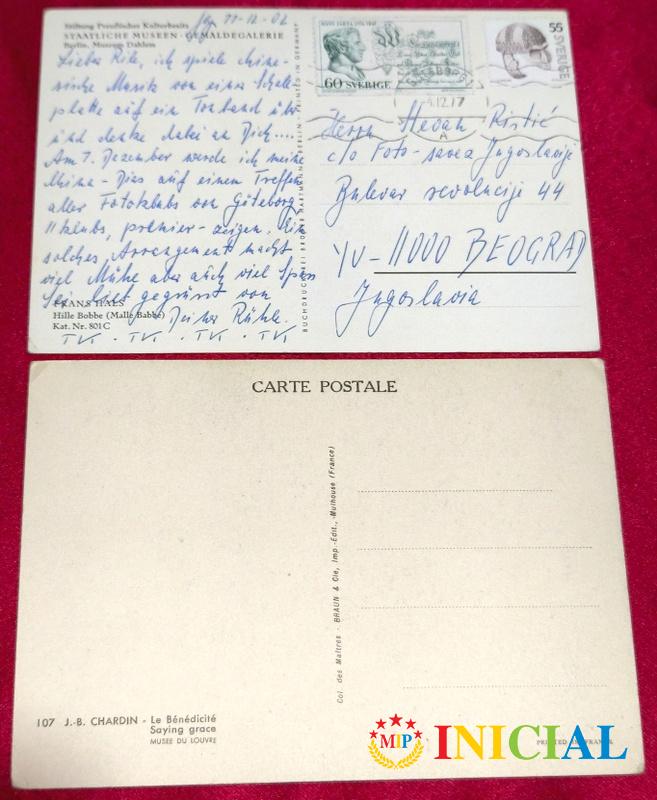 Stiftung Preußischer Kulturbesitz
STAATLICHE MUSEEN · GEMÄLDEGALERIE
Berlin, Museum Dahlem
Lieber Rile, ich spiele chine-
sische Musik von einer Schall-
platte auf ein Tonband über
und denke dabei an Dich....
Am 7. Dezember werde ich meine
China-Dias auf einem Treffen
aller Fotoklubs von Göteborg,
11 klubs, premier-zeigen. Ein
solches Arrangement macht
viel Mühe aber auch viel Spass
Sei lieb gegrüsst von
FRANS HALS
Hille Bobbe (Malle Babbe)
Kat. Nr. 801C
Rühle.
BUCHDRUCKEREI BRÜDER HARTMANN · BERLIN · PRINTED IN GERMANY
60 SVERIGE
55
SVERIGE
Herrn Stevan Ristić
c/o Foto-savez Jugoslavije
Bulevar revolucije 44
YU-11000 BEOGRAD
Jugoslavia
CARTE POSTALE
Col. des Maîtres - BRAUN & Cie, Imp.-Édit., Mulhouse (France)
107 J.-B. CHARDIN - Le Bénédicité
Saying grace
MUSÉE DU LOUVRE
PRINTED IN FRANCE
MIP INICIAL